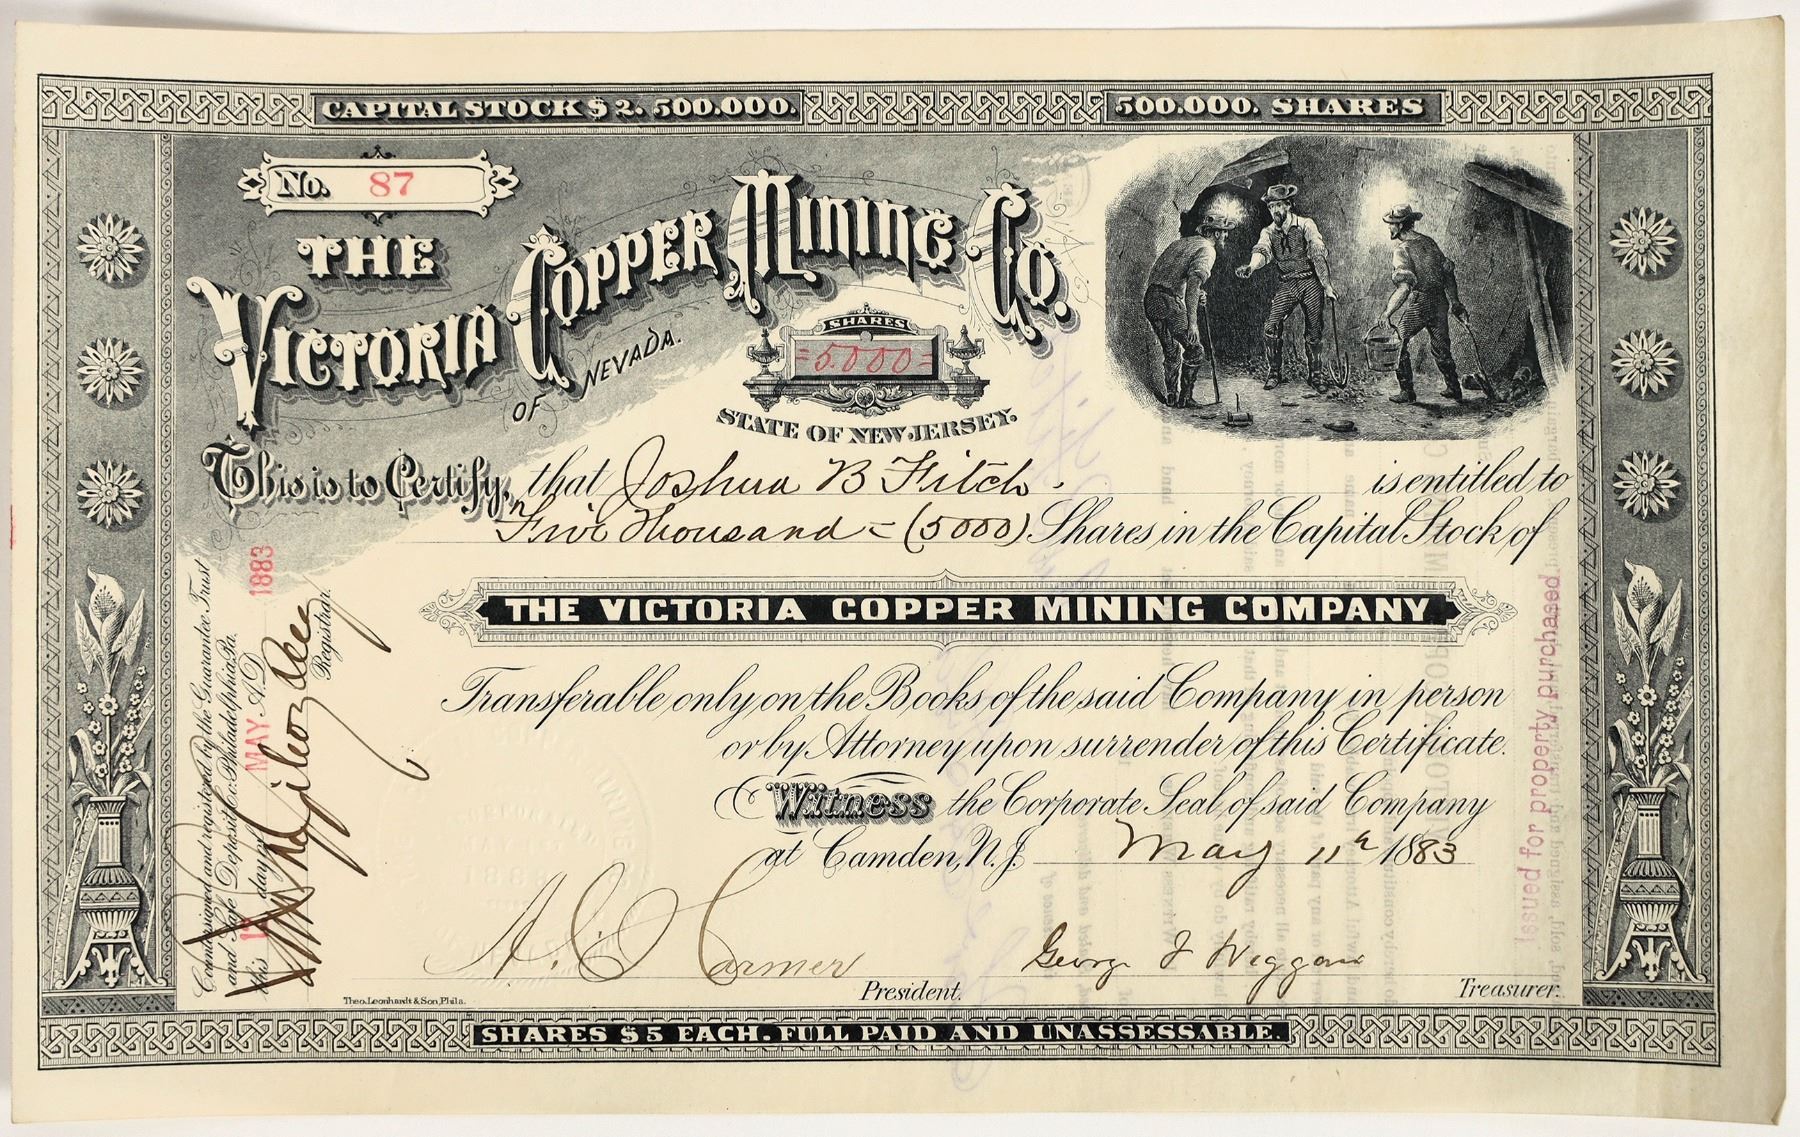 CAPITAL STOCK $2.500.000.
500.000. SHARES
No. 87
THE
VICTORIA COPPER MINING CO.
OF NEVADA.
SHARES
=5.000=
STATE OF NEW JERSEY.
This is to Certify, that Joshua B Fitch. is entitled to
Five Thousand = (5000) Shares in the Capital Stock of
THE VICTORIA COPPER MINING COMPANY.
Transferable only on the Books of the said Company in person
or by Attorney upon surrender of this Certificate.
Witness the Corporate Seal of said Company
at Camden, N.J. May 11th 1883
President.
George J
Treasurer.
Theo. Leonhardt & Son, Phila.
SHARES $5 EACH. FULL PAID AND UNASSESSABLE.
Countersigned and registered by the Guarantee Trust
and Safe Deposit Co. Philadelphia, Pa.
this day of MAY A.D. 1883
Registrar.
Issued for property purchased